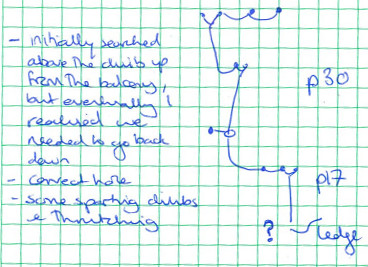 - initially searched
above the climb up
from the balcony,
but eventually I
realised we
needed to go back
down
- correct hole
- some sporting climbs
& thrutching
p30
p17
?
ledge